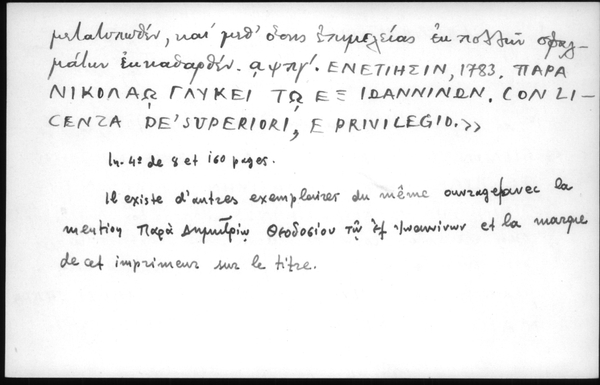 μετατυπωθέν, καὶ μεθ' ὅσης ἐπιμελείας ἐκ πολλῶν σφαλ-
μάτων ἐκκαθαρθέν. αψπγ'. ΕΝΕΤΙΗΣΙΝ, 1783. ΠΑΡΑ
ΝΙΚΟΛΑΩ ΓΛΥΚΕΙ ΤΩ ΕΞ ΙΩΑΝΝΙΝΩΝ. CON LI-
CENZA DE' SUPERIORI, E PRIVILEGIO.>>
In-4º de 8 et 160 pages.
Il existe d'autres exemplaires du même ouvrage avec la
mention Παρὰ Δημητρίῳ Θεοδοσίου τῷ ἐξ Ἰωαννίνων et la marque
de cet imprimeur sur le titre.